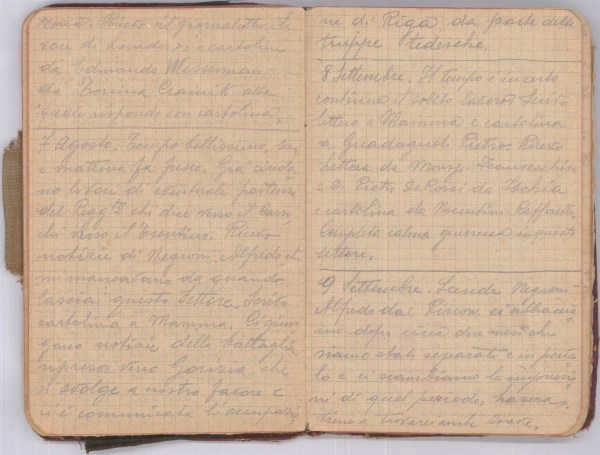 zona. Ricevo il giornaletto, le
voci di Lourdes e cartolin
da Edmondo Messerman
da
quali rispondo con cartolina.
7 Agosto. Tempo bellissimo, se
e mattina fa fresco. Già circola
no le voci di eventuale partenza
del Regg.to chi dice verso il Carso
chi verso il Trentino. Ricevo
notizie di Negroni Alfredo che
mi mancavano da quando
lasciai questo settore. Scrivo
cartolina a Mamma. Ci giun
gono notizie della battaglia
ripresa verso Gorizia, che
si svolge a nostro favore e
ci è comunicata la occupazio
ne di Riga da parte delle
truppe tedesche.
8 Settembre. Il tempo è incerto
continua il solito lavoro. Scrivo
lettera a Mamma e cartolina
a Guadagnoli Pietro. Ricevo
lettera da Mons. Franceschini
e D. Pietro De Rossi da Ischia
e cartolina da Nocentini Raffaello.
Completa calma guerresca in questo
settore.
9 Settembre. Scende Negroni
Alfredo dal ci abbraccia
mo dopo circa due mesi che
siamo stati separati e in perico
lo e ci scambiamo le impressio
ni di quel periodo.
viene a trovarci anche